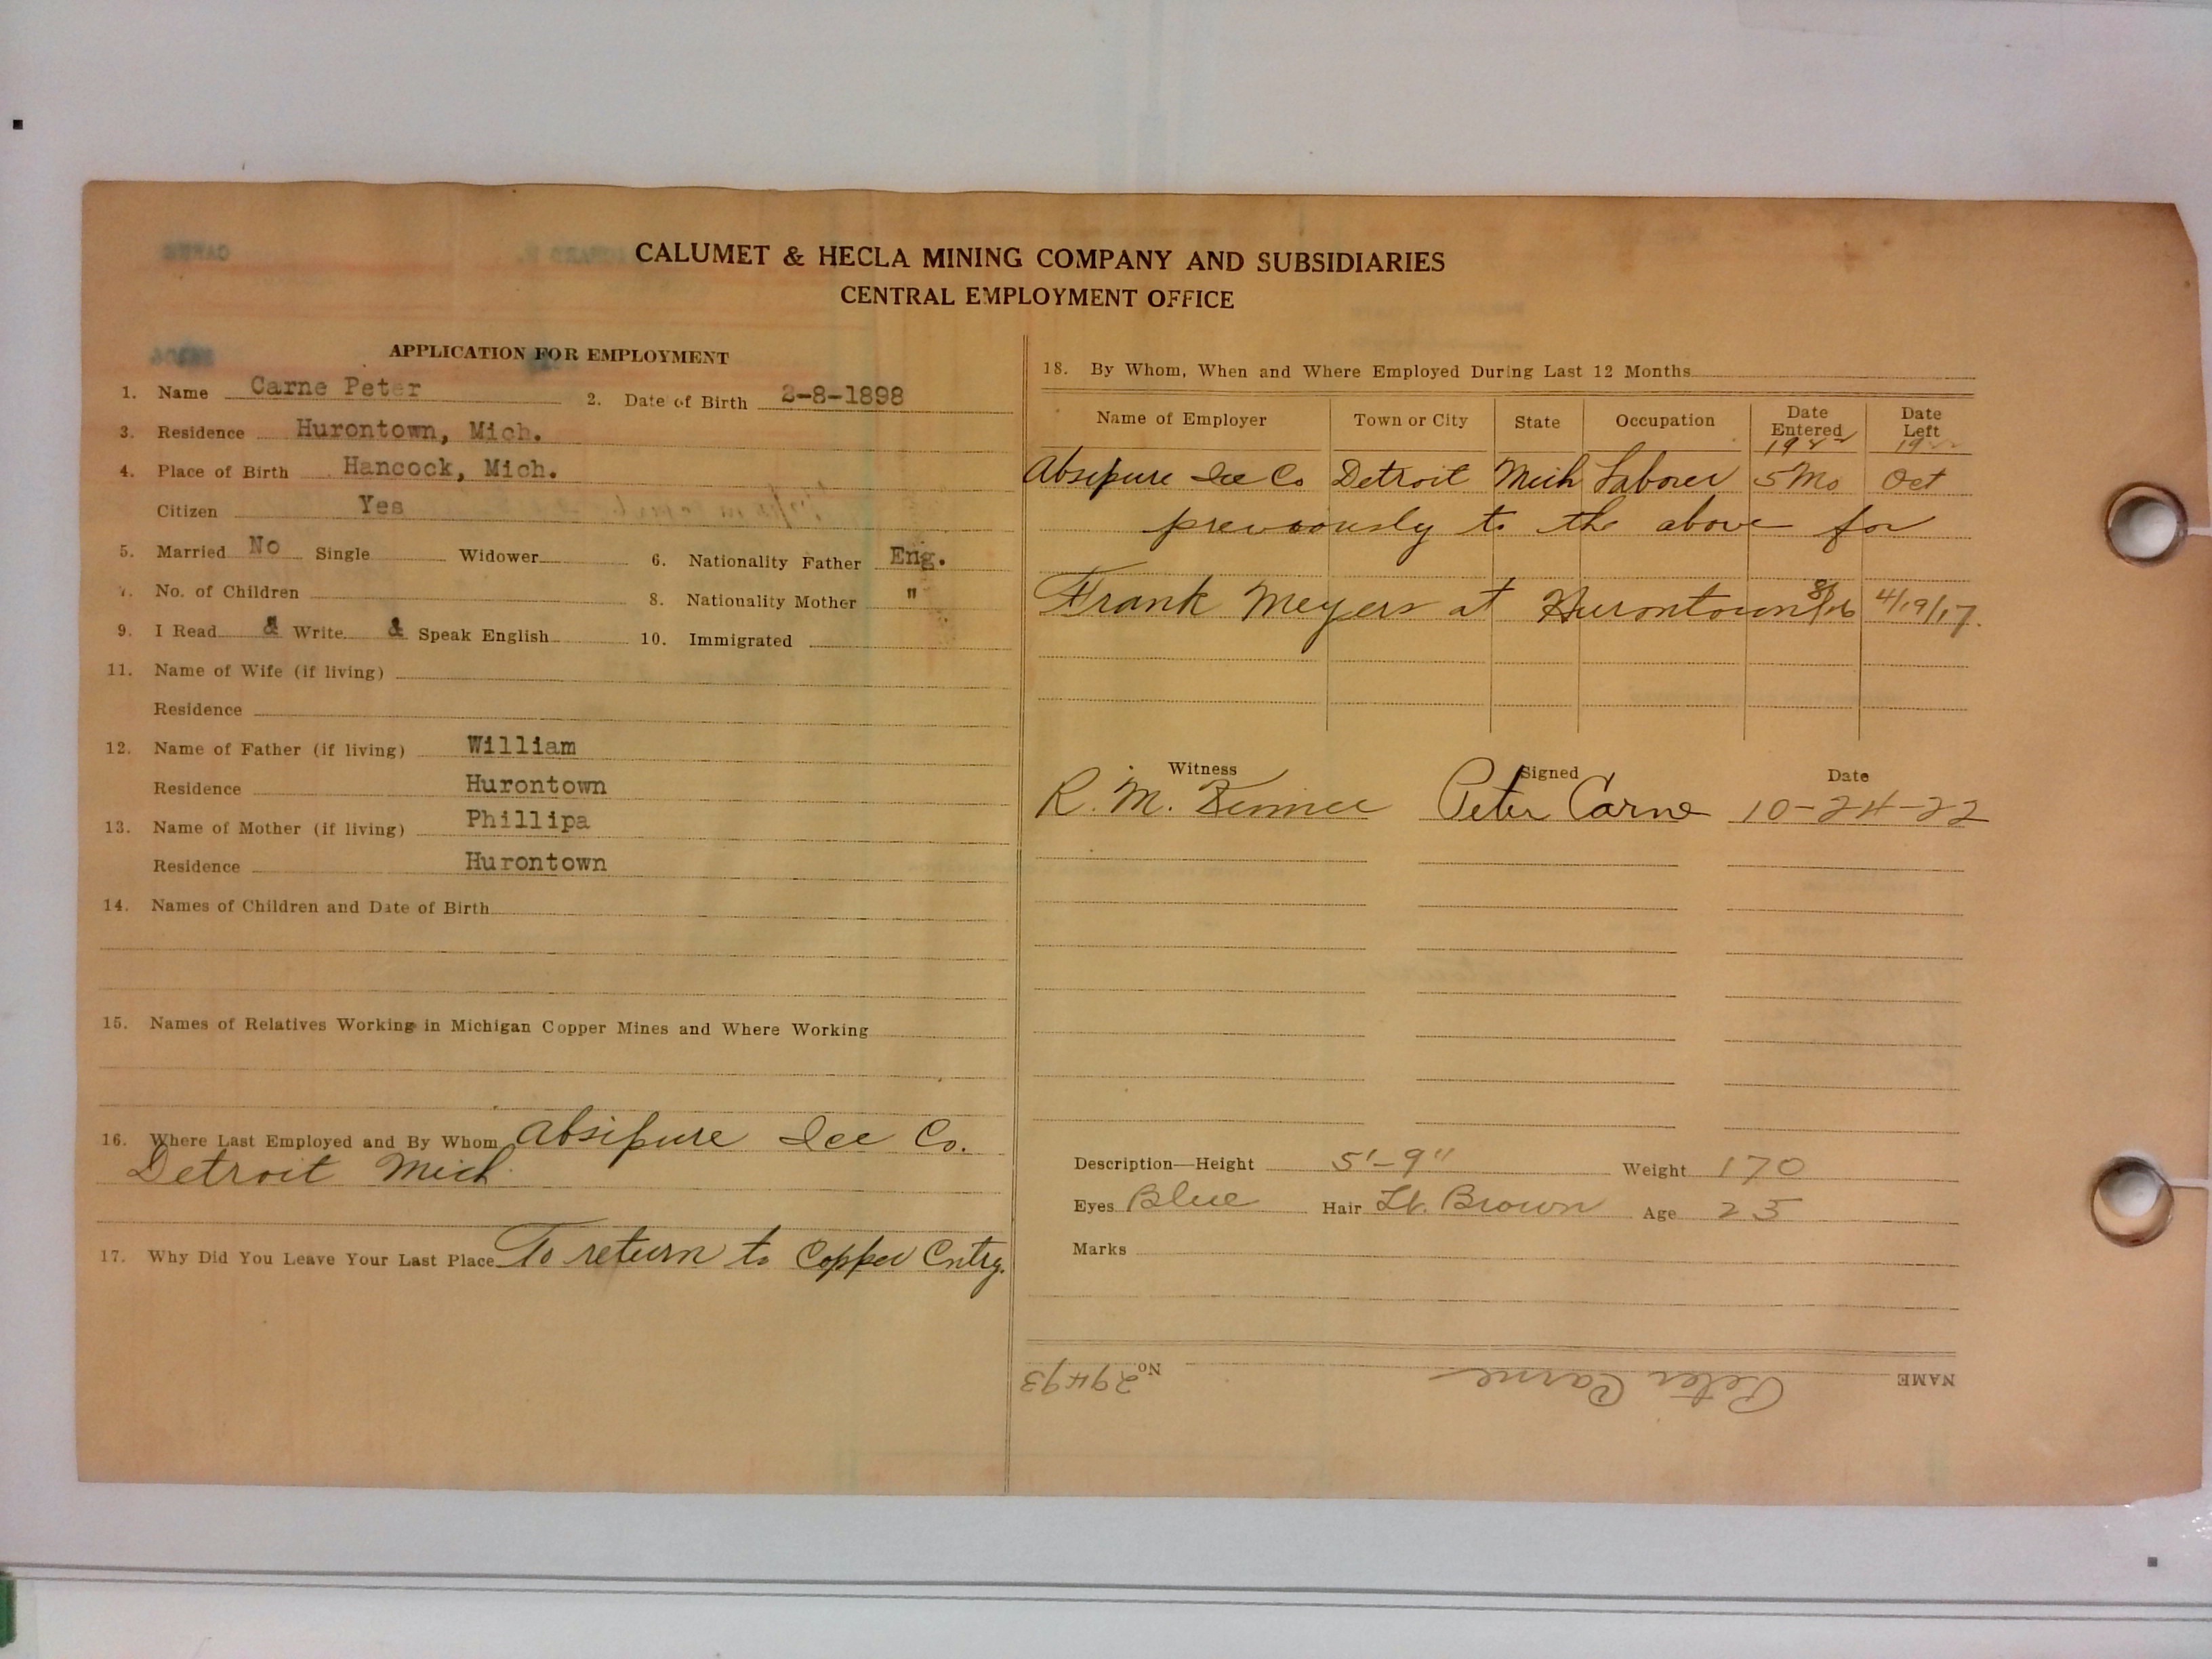 CALUMET & HECLA MINING COMPANY AND SUBSIDIARIES
CENTRAL EMPLOYMENT OFFICE
APPLICATION FOR EMPLOYMENT
1. Name Carne Peter 2. Date of Birth 2-8-1898
3. Residence Hurontown, Mich.
4. Place of Birth Hancock, Mich.
Citizen Yes
5. Married No Single Widower 6. Nationality Father Eng.
7. No. of Children 8. Nationality Mother "
9. I Read & Write & Speak English 10. Immigrated
11. Name of Wife (if living)
Residence
12. Name of Father (if living) William
Residence Hurontown
13. Name of Mother (if living) Phillipa
Residence Hurontown
14. Names of Children and Date of Birth
15. Names of Relatives Working in Michigan Copper Mines and Where Working
16. Where Last Employed and By Whom Absipure Ice Co.
Detroit Mich
17. Why Did You Leave Your Last Place To return to Copper Cntry.
18. By Whom, When and Where Employed During Last 12 Months
Name of Employer Town or City State Occupation Date Entered Date Left
1922 1922
Absipure Ice Co Detroit Mich Laborer 5 Mo Oct
previously to the above for
Frank Meyers at Hurontown 8/16 4/19/17.
Witness Signed Date
R. M. Peter Carne 10-24-22
Description—Height 5'-9" Weight 170
Eyes Blue Hair Lt. Brown Age 25
Marks
NAME Peter Carne No. 29493